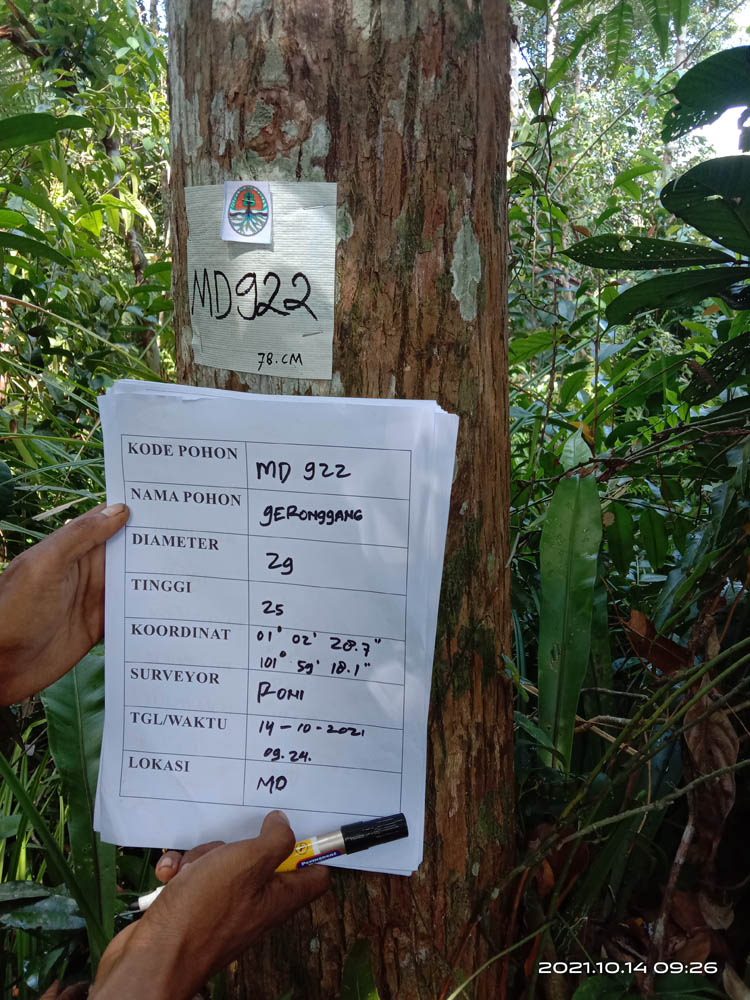 MD922
78.CM
KODE POHON MD 922
NAMA POHON gERONggANG
DIAMETER 29
TINGGI 25
KOORDINAT 01° 02' 28.7"
101° 59' 18.1"
SURVEYOR RONI
TGL/WAKTU 14-10-2021
09.24.
LOKASI MD
Permanent
2021.10.14 09:26